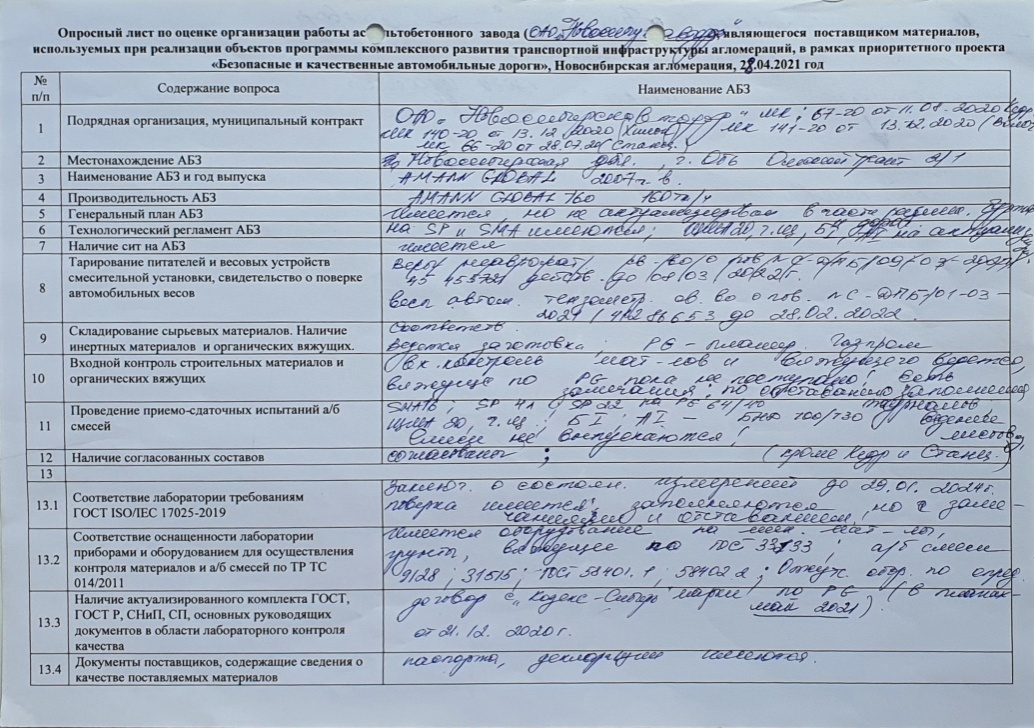 Опросный лист по оценке организации работы ас льтобетонного завода (ОАО „Новосибирскавтодор" являющегося поставщиком материалов,
используемых при реализации объектов программы комплексного развития транспортной инфраструктуры агломераций, в рамках приоритетного проекта
«Безопасные и качественные автомобильные дороги», Новосибирская агломерация, 28.04.2021 год
№ п/п Содержание вопроса Наименование АБЗ
1 Подрядная организация, муниципальный контракт
ОАО „Новосибирскавтодор" МК: 67-20 от 11.08.2020
МК 140-20 от 13.12.2020 МК 141-20 от 13.12.2020
МК 66-20 от 28.07.20 (Станц.)
2 Местонахождение АБЗ Новосибирская обл., г. Обь Омский тракт 2/1
3 Наименование АБЗ и год выпуска AMANN GLOBAL 2007г.в.
4 Производительность АБЗ AMANN GLOBAL 160 160тн/ч
5 Генеральный план АБЗ Имеется, но не актуализирован в части
6 Технологический регламент АБЗ На SP и SMA имеются; ЩМА 20,
7 Наличие сит на АБЗ имеется
8 Тарирование питателей и весовых устройств
смесительной установки, свидетельство о поверке
автомобильных весов
Весы
действ. до 08/03/2022г.
весы автом. тензометр. св. во о пов. №С-ДПБ/01-03-
2021/41286653 до 28.02.2022
9 Складирование сырьевых материалов. Наличие
инертных материалов и органических вяжущих.
Соответств.
Ведется заготовка; PG - планир. Газпром
10 Входной контроль строительных материалов и
органических вяжущих
Вх. контроль мат-лов и вяжущего ведется,
вяжущие по PG пока не поступало; есть
замечания, по отставанию заполнения
11 Проведение приемо-сдаточных испытаний а/б
смесей
SMA16; SP 4л; SP22 на PG 64/40 журналов,
ЩМА 20, БНД 100/130
Смеси не выпускаются;
12 Наличие согласованных составов согласованы; (кроме Кедр и Станц.)
13
13.1 Соответствие лаборатории требованиям
ГОСТ ISO/IEC 17025-2019
Заключ. о состоян. измерений до 29.01.2024г.
поверка имеется, заполняются, но с заме-
чаниями и отставанием
13.2 Соответствие оснащенности лаборатории
приборами и оборудованием для осуществления
контроля материалов и а/б смесей по ТР ТС
014/2011
Имеется оборудование на мат-лы,
грунты, вяжущее по ГОСТ 33133, а/б смеси
9128; 31015; ГОСТ 58401.1; 58402.2; Отсут. обор. по опред.
13.3 Наличие актуализированного комплекта ГОСТ,
ГОСТ Р, СНиП, СП, основных руководящих
документов в области лабораторного контроля
качества
договор с „Кодекс-Сибирь" марки по PG (в планах-
май 2021).
от 21.12.2020г.
13.4 Документы поставщиков, содержащие сведения о
качестве поставляемых материалов
паспорта, декларации имеются.